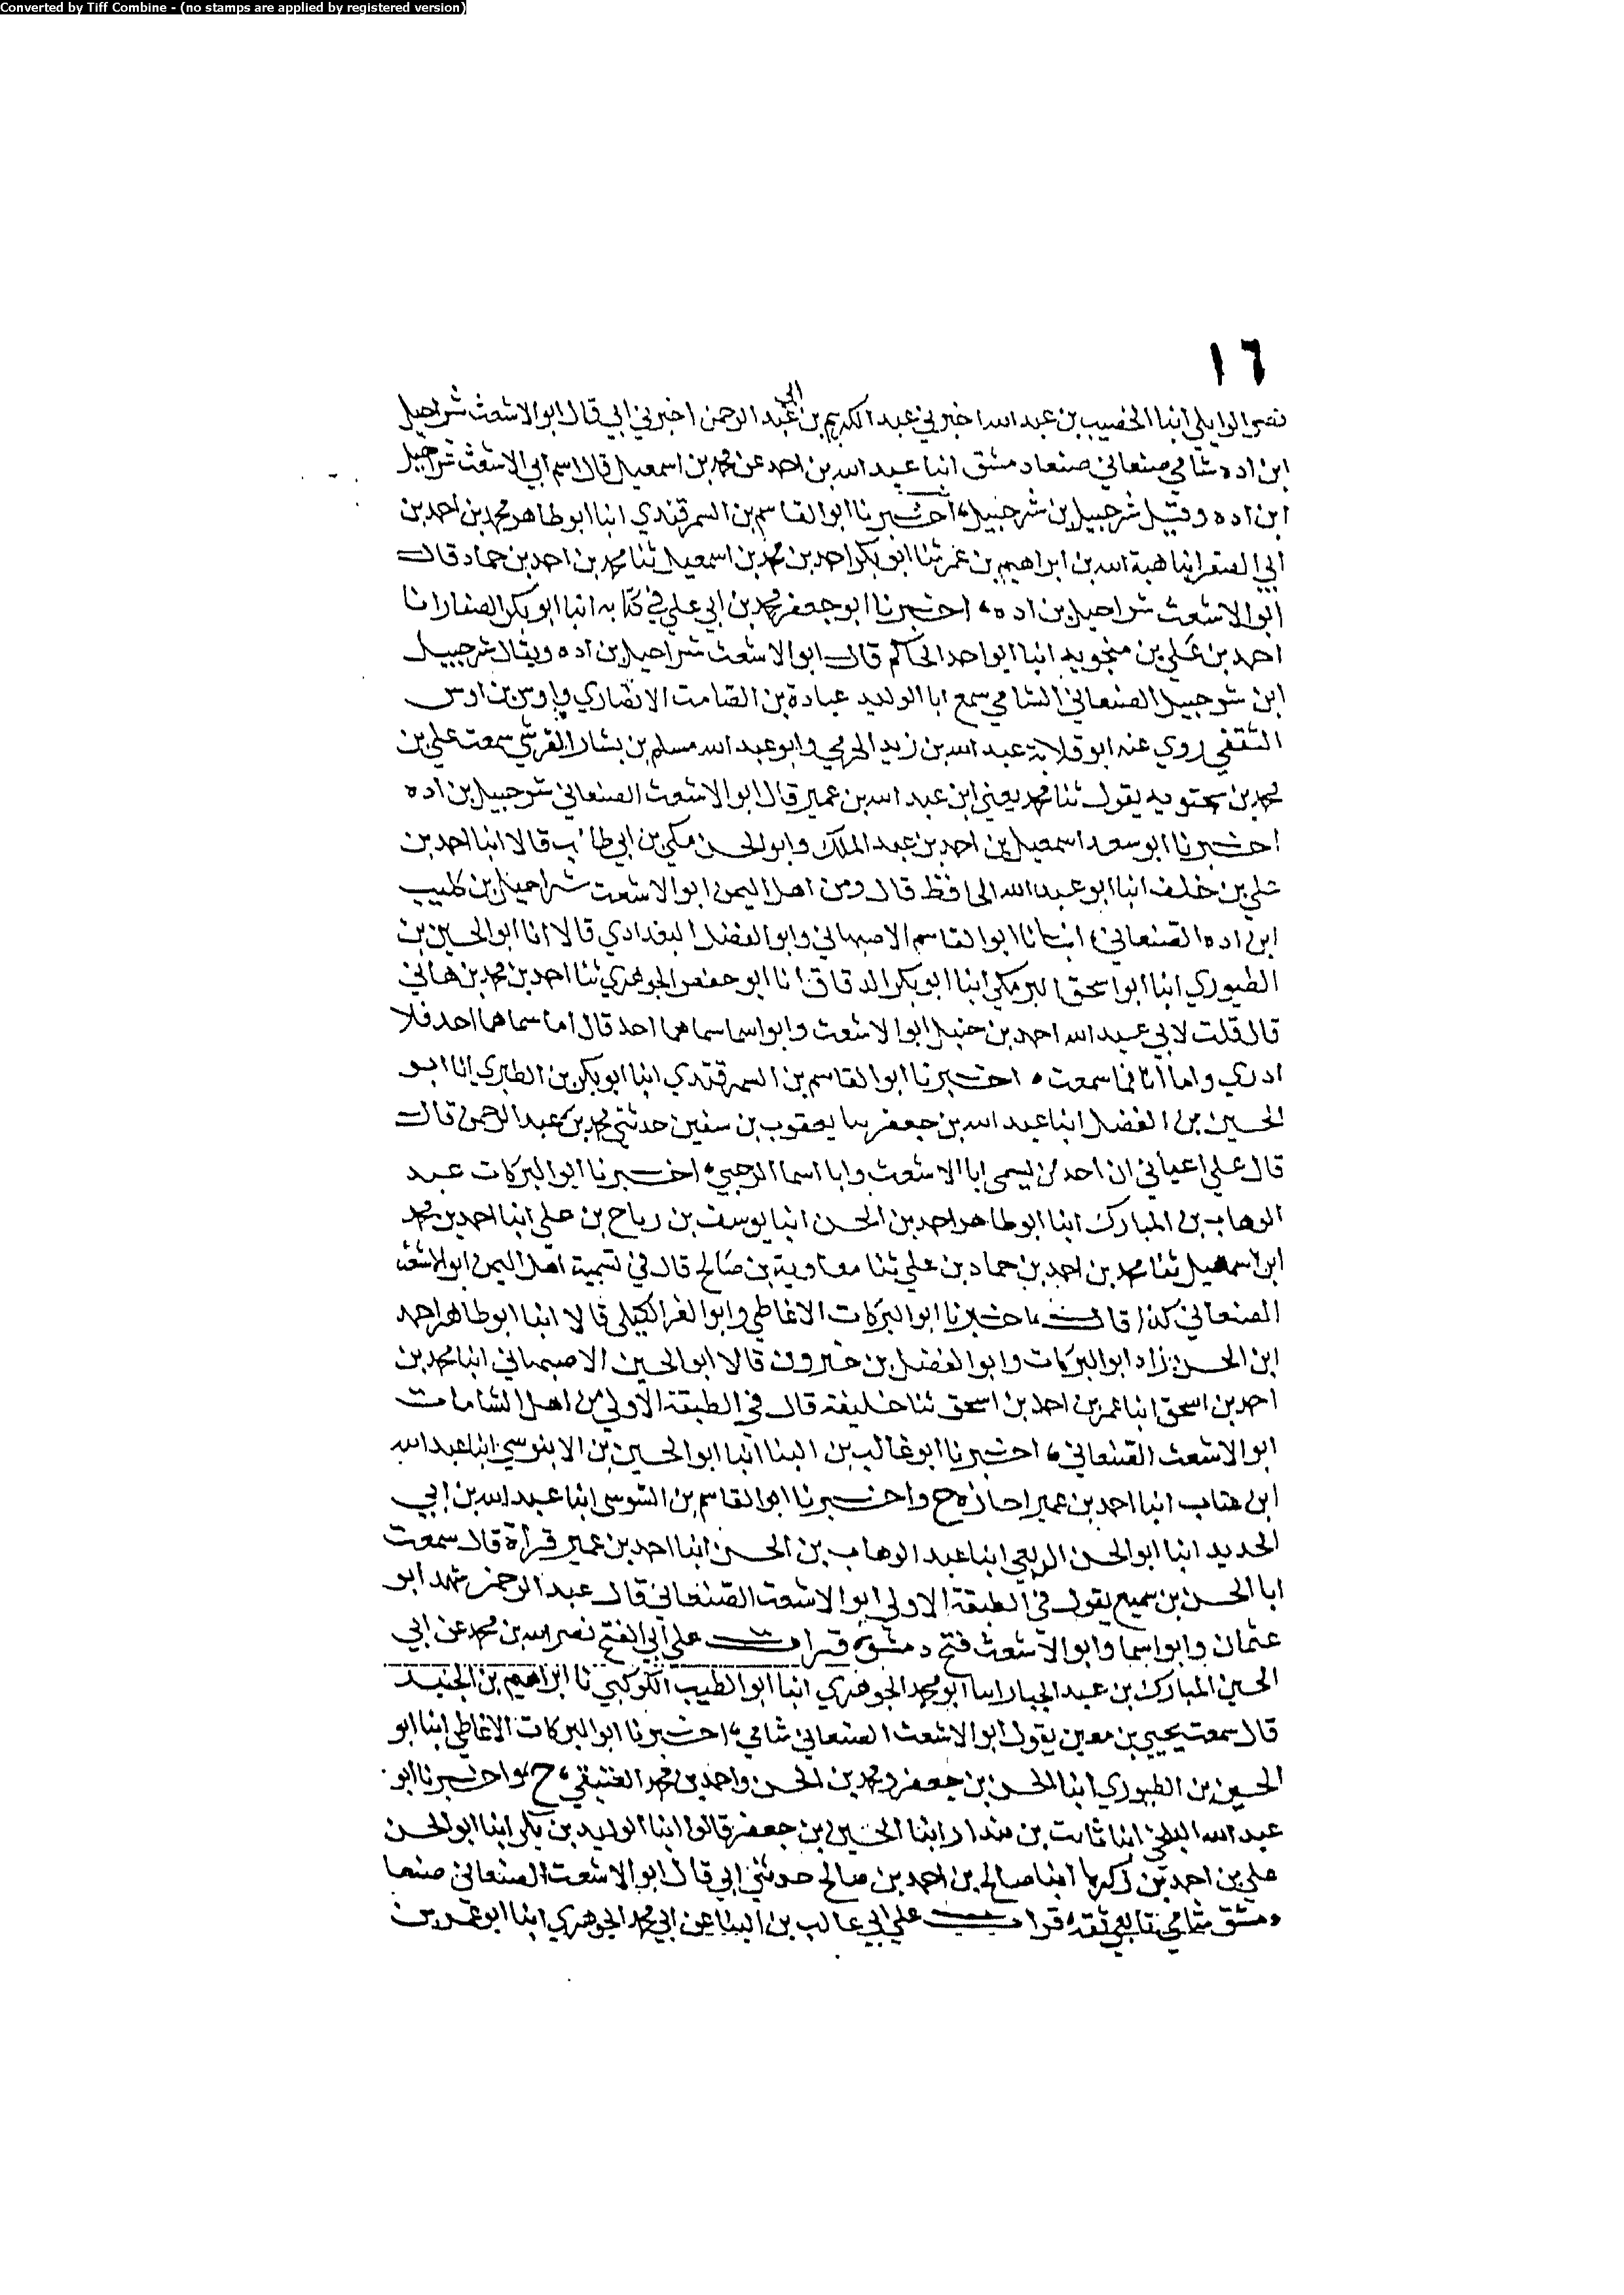 Converted by Tiff Combine - (no stamps are applied by registered version)
١٦
نصر الوايلي انبا الخصيب بن عبد الله اخبرني عبد الكريم بن ابي عبد الرحمن اخبرني ابي قال ابو الاشعث شراحيل
ابن اده شامي صنعاني صنعا دمشق انبا عبد الله بن احمد عن محمد بن اسمعيل قال اسم ابي الاشعث شراحيل
ابن اده وقيل شرحبيل بن شرحبيل، اخبرنا ابو القاسم بن السمرقندي انبا ابو طاهر محمد بن احمد بن
ابي الصقر انبا هبة الله بن ابراهيم بن عمر ثنا ابو بكر احمد بن محمد بن اسمعيل ثنا محمد بن احمد بن حماد قال
ابو الاشعث شراحيل بن اده، اخبرنا ابو جعفر محمد بن ابي علي في كتابه انبا ابو بكر الصفار انا
احمد بن علي بن منجويه انبا ابو احمد الحاكم قال ابو الاشعث شراحيل بن اده ويقال شرحبيل
ابن شرحبيل الصنعاني الشامي سمع ابا الوليد عبادة بن الصامت الانصاري واوس بن اوس
الثقفي روي عنه ابو قلابة عبد الله بن زيد الجرمي وابو عبد الله مسلم بن يشار القرشي سمعت علي بن
محمد بن سختويه يقول ثنا محمد يعني ابن عبد الله بن عمير قال ابو الاشعث الصنعاني شرحبيل بن اده
اخبرنا ابو سعد اسمعيل بن احمد بن عبد الملك وابو الحسن مكي بن ابي طالب قالا انبا احمد بن
علي بن خلف انبا ابو عبد الله الحافظ قال ومن اهل اليمن ابو الاشعث شراحيل بن كليب
ابن اده الصنعاني، انبانا ابو القاسم الاصبهاني وابو الفضل البغدادي قالا انا ابو الحسين بن
الطيوري انبا ابو اسحق البرمكي انبا ابو بكر الدقاق انا ابو حفص الجوهري ثنا احمد بن محمد بن هاني
قال قلت لابي عبد الله احمد بن حنبل ابو الاشعث وابو اسما سماهما احد قال اما سماهما احد فلا
ادري واما انا فما سمعت، اخبرنا ابو القاسم بن السمرقندي انبا ابو بكر بن الطبري انا ابو
الحسين بن الفضل انبا عبد الله بن جعفر ثنا يعقوب بن سفين حدثني محمد بن عبد الرحمن قال
قال علي اعياني ان احد من يسمى ابا الاشعث وابا اسما الرحبي، اخبرنا ابو البركات عبد
الوهاب بن المبارك انبا ابو طاهر احمد بن الحسن انبا يوسف بن رباح بن علي انبا احمد بن محمد
ابن اسمعيل ثنا محمد بن احمد بن حماد بن علي ثنا معاوية بن صالح قال في تسمية اهل اليمن ابو الاشعث
الصنعاني كذا قال، اخبرنا ابو البركات الانماطي وابو العز الكيلي قالا انبا ابو طاهر احمد
ابن الحسن زاد ابو البركات وابو الفضل بن خيرون قالا ابو الحسين الاصبهاني انبا محمد بن
احمد بن اسحق انبا عمر بن احمد بن اسحق ثنا خليفة قال في الطبقة الاولى من اهل الشامات
ابو الاشعث الصنعاني، اخبرنا ابو غالب بن البنا انبا ابو الحسين بن الابنوسي انبا عبد الله
ابن عتاب انبا احمد بن عمير اجازة ح واخبرنا ابو القاسم بن السوسي انبا عبد الله بن ابي
الحديد انبا ابو الحسن الربعي انبا عبد الوهاب بن الحسن انبا احمد بن عمير قراة قال سمعت
ابا الحسن بن سميع يقول في الطبقة الاولي ابو الاشعث الصنعاني قال عبد الرحمن شهد ابو
عثمان وابو اسما وابو الاشعث فتح دمشق، قرات علي ابي الفتح نصر الله بن محمد عن ابي
الحسين المبارك بن عبد الجبار انبا ابو محمد الجوهري انبا ابو الطيب الكوكبي نا ابراهيم بن الجنيد
قال سمعت يحيي بن معين يقول ابو الاشعث الصنعاني شامي، اخبرنا ابو البركات الانماطي انبا ابو
الحسين بن الطيوري انبا الحسن بن جعفر ومحمد بن الحسن واحمد بن محمد العتيقي، ح واخبرنا ابو
عبد الله البلخي انبا ثابت بن بندار انبا الحسين بن جعفر قالوا انبا الوليد بن بكر انبا ابو الحسن
علي بن احمد بن زكريا انبا صالح بن احمد بن صالح حدثني ابي قال ابو الاشعث الصنعاني صنعا
دمشق شامي تابعي ثقة، قرات علي ابي غالب بن البنا عن ابي محمد الجوهري انبا ابو عمر بن